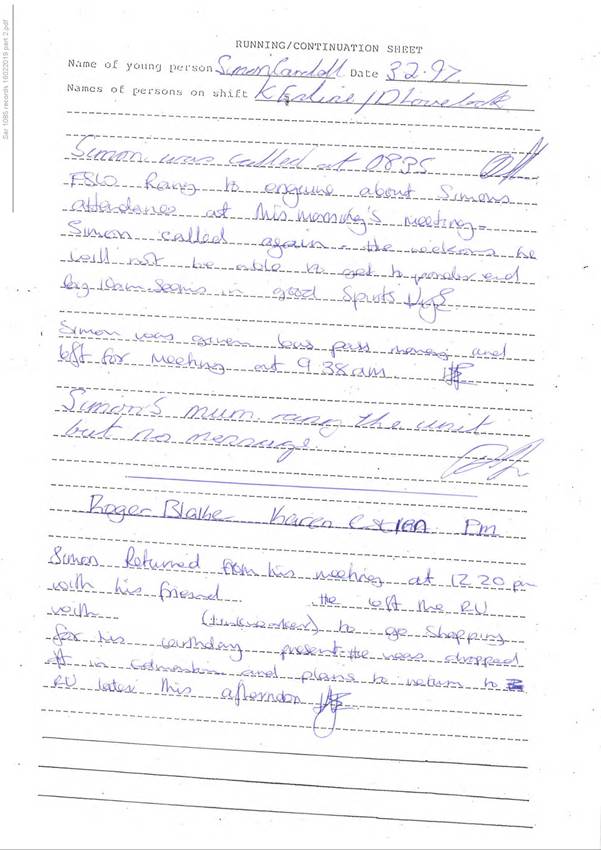 Sar 1085 records 16022019 part 2.pdf
RUNNING/CONTINUATION SHEET
Name of young person Simon Date 3.2.97.
Names of persons on shift K / D Lovelock
Simon was called at 0835
FSLO Rang to enquire about Simons
attendance at this morning's meeting-
Simon called again - he reckons he
will not be able to get to and
by 10am seems in good Spirits
Simon was given bus pass money and
left for meeting at 9.38am
Simon's mum rang the unit
but no message.
Roger Karen PM
Simon Returned from his meeting at 12.20 pm
with his friend He left the RU
with (linkworker) to go Shopping
for his birthday present. He was dropped
in and plans to return to
RU later this afternoon